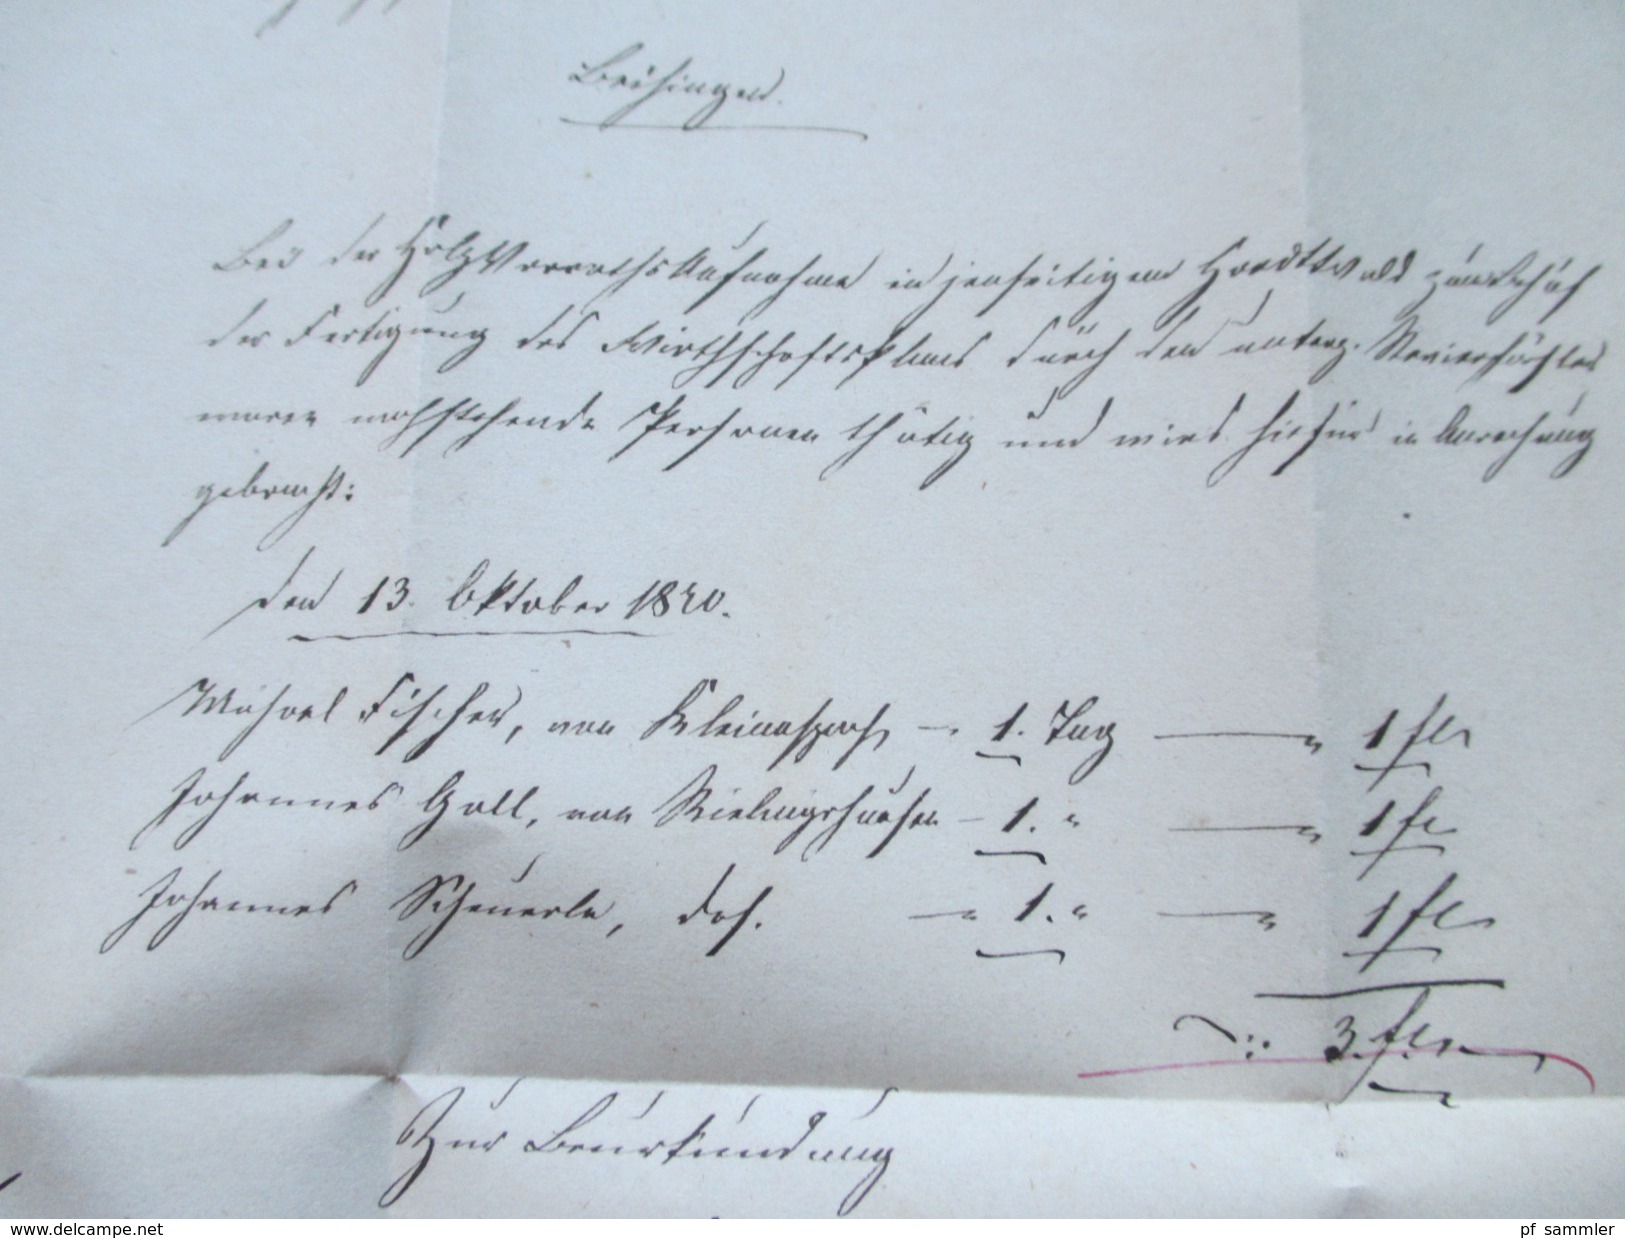 Beihingen.
Bei der HolzVorrathsAufnahme in jenseitigem Hardtwald zum Behuf
der Fertigung des Wirthschaftsplans durch den unterz. Revierförster
waren nachstehende Personen thätig und wird hiefür in Anrechnung
gebracht:
den 13. Oktober 1840.
Michael Fischer, von Kleinaspach, – 1. Tag — " 1 fl
Johannes Gall, von Rielingshausen – 1. " — " 1 fl
Johannes Scheuerle, das. — " 1. " — " 1 fl
: 3. fl.
Zur Beurkundung
www.delcampe.net
pf_sammler